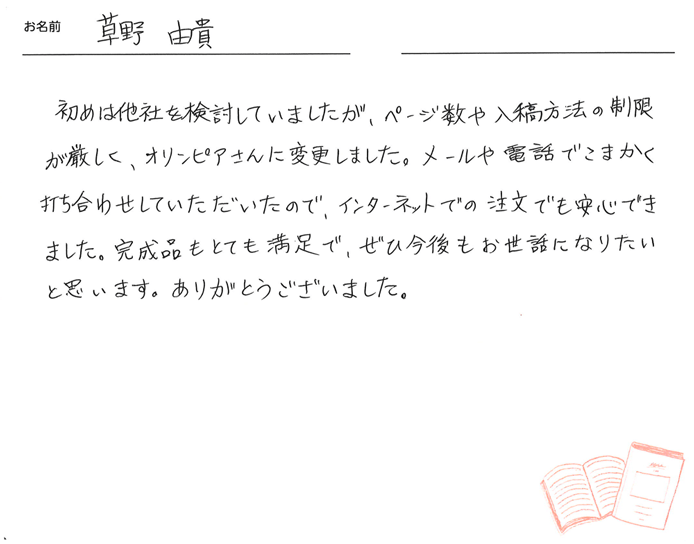 お名前 草野 由貴
初めは他社を検討していましたが、ページ数や入稿方法の制限
が厳しく、オリンピアさんに変更しました。メールや電話でこまかく
打ち合わせしていただいたので、インターネットでの注文でも安心でき
ました。完成品もとても満足で、ぜひ今後もお世話になりたい
と思います。ありがとうございました。